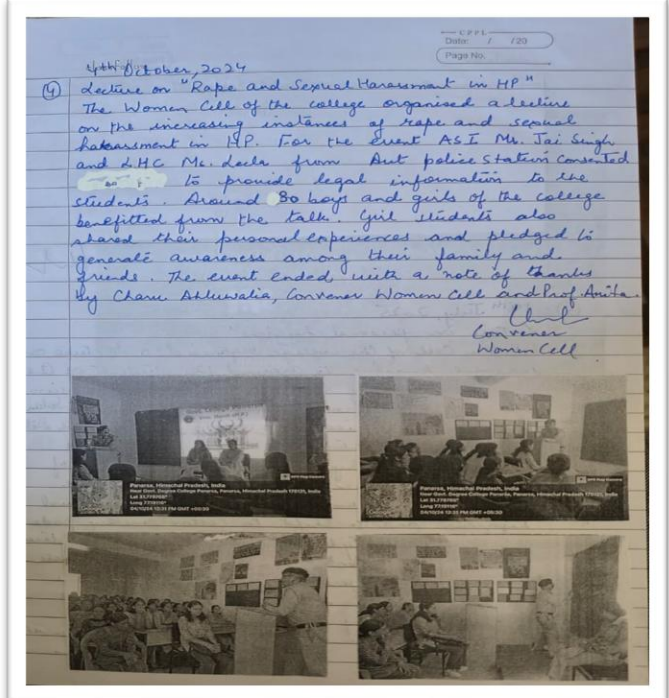 CPPL
Date: / /20
Page No.
4th October, 2024
④ Lecture on "Rape and Sexual Harassment in HP"
The Women Cell of the college organised a lecture
on the increasing instances of rape and sexual
harassment in HP. For the event ASI Mr. Jai Singh
and LHC Ms. from Aut police Station consented
to provide legal information to the
students. Around 80 boys and girls of the college
benefitted from the talk. Girl students also
shared their personal experiences and pledged to
generate awareness among their family and
friends. The event ended with a note of thanks
by Charu Ahluwalia, Convener Women Cell and Prof. Anita.
Convener
Women Cell
Panarsa, Himachal Pradesh, India
Near Govt. Degree College Panarsa, Panarsa, Himachal Pradesh 175121, India
Panarsa, Himachal Pradesh, India
Near Govt. Degree College Panarsa, Panarsa, Himachal Pradesh 175121, India